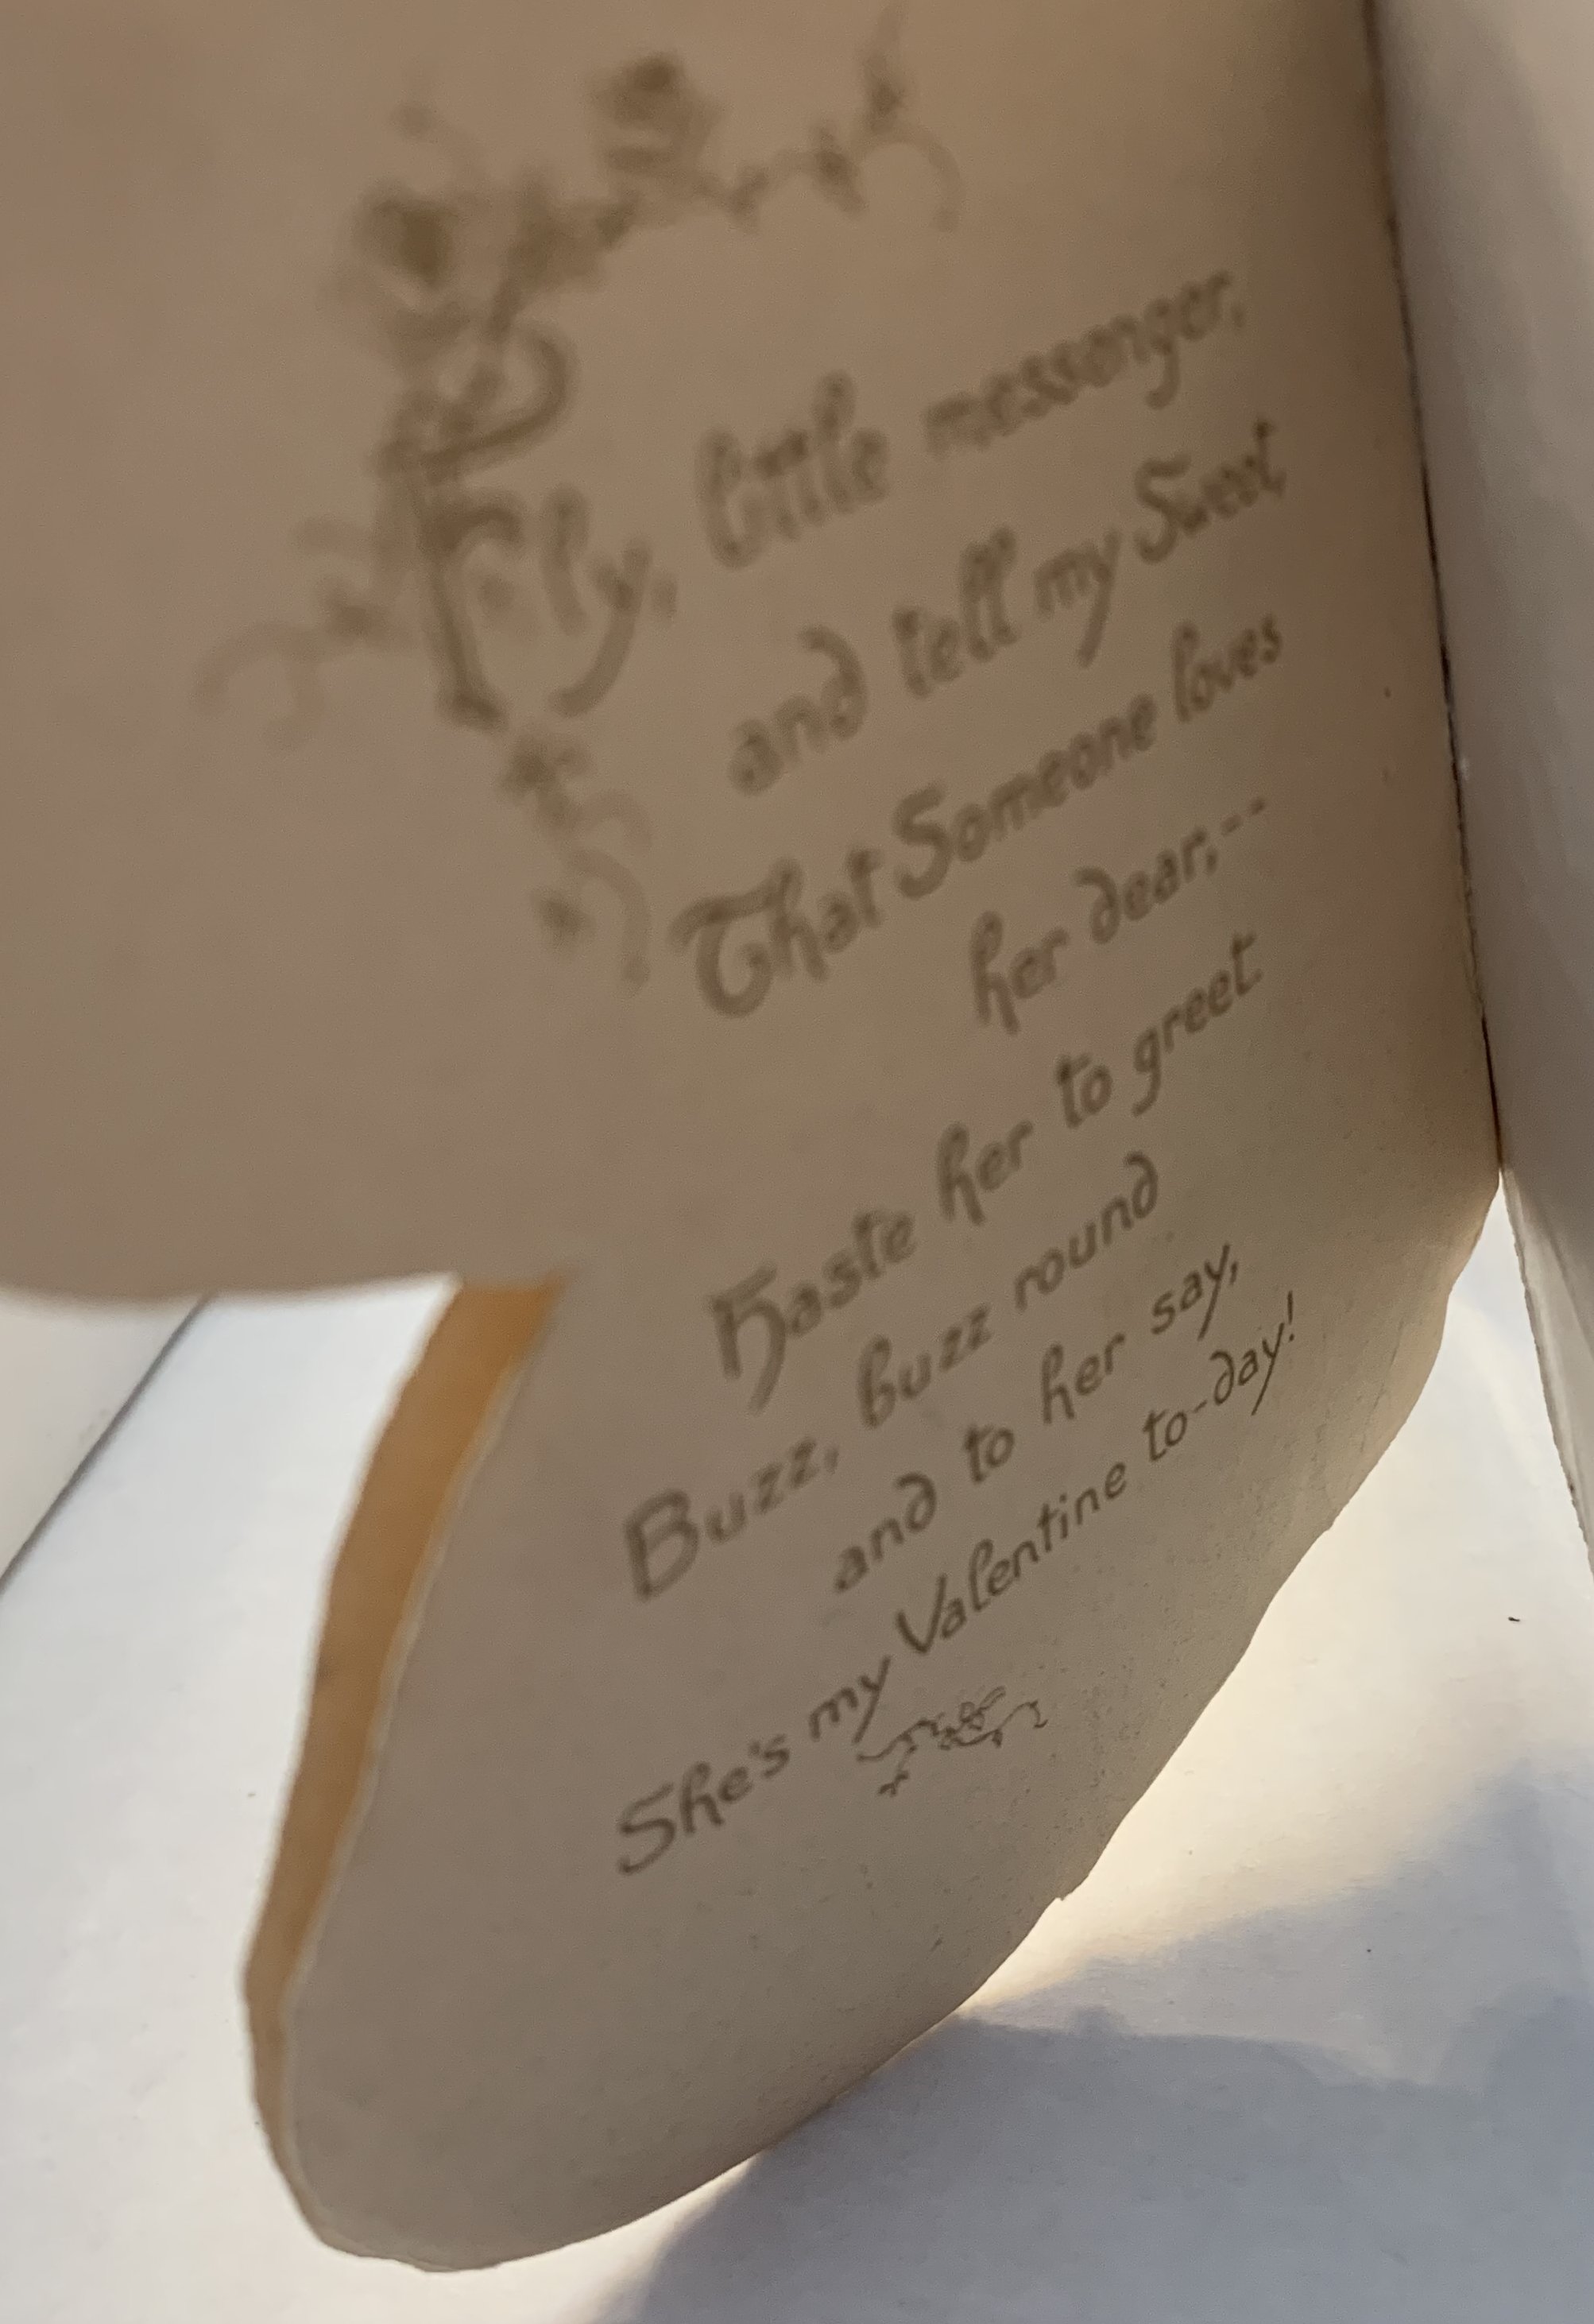 Fly, little messenger,
and tell my Sweet
That Someone loves
her dear,--
Haste her to greet
Buzz, buzz round
and to her say,
She's my Valentine to-day!